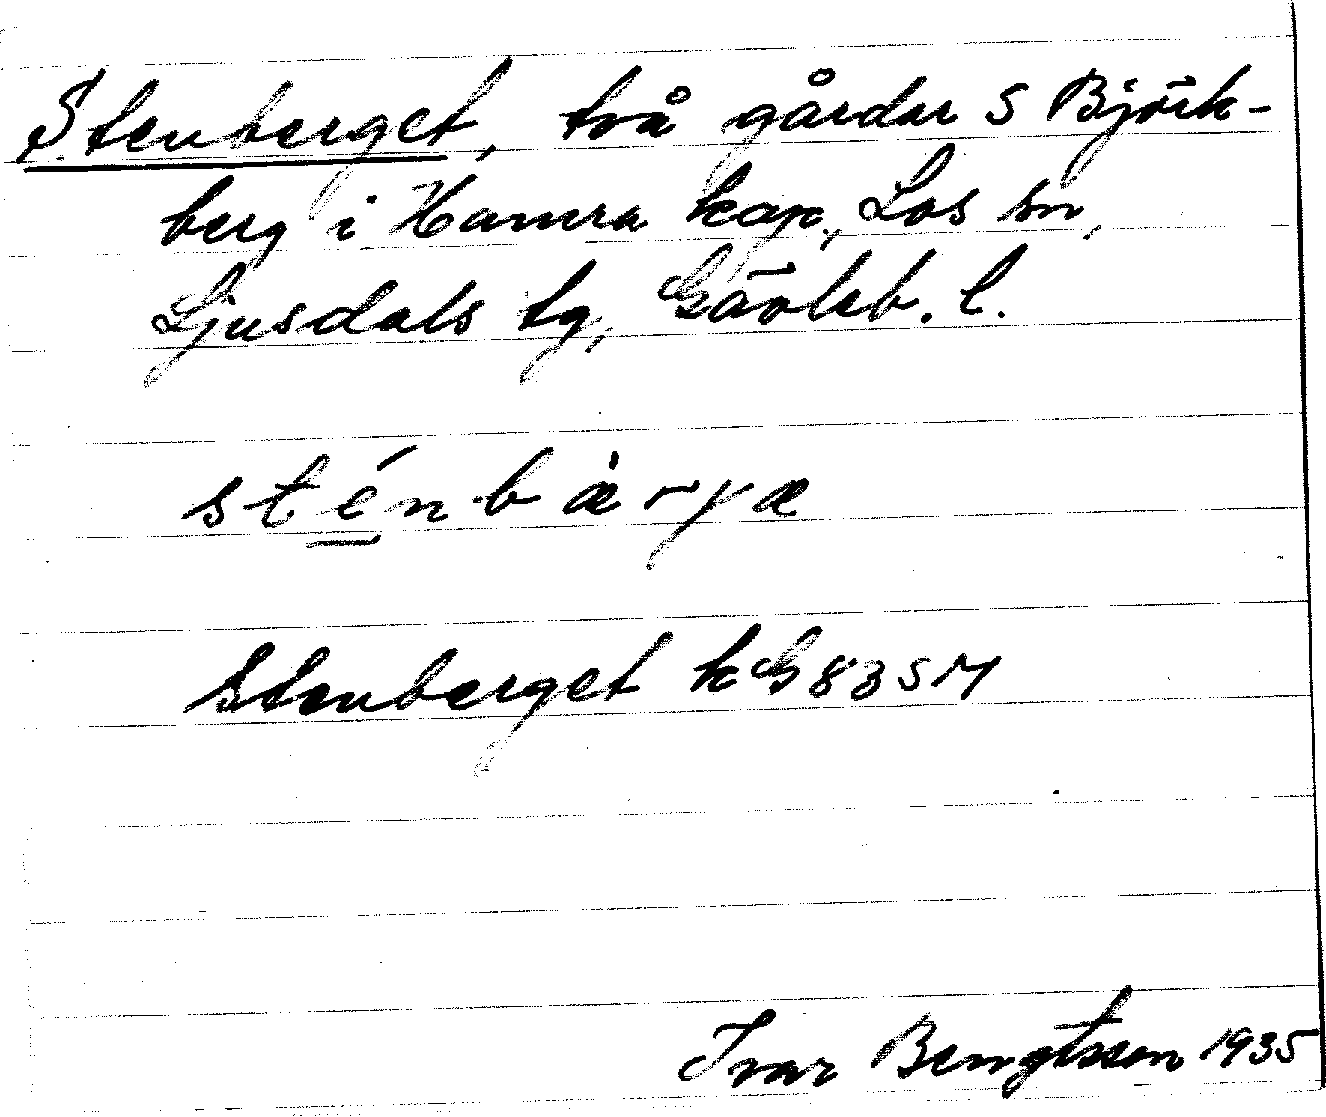 Stenberget, två gårdar S Björk-
berg i Hamra kap., Los sn,
Ljusdals tg, Gävleb. l.
sténbæ̀rγæ
Stenberget kG 83 SM
Ivar Bengtsson 1935